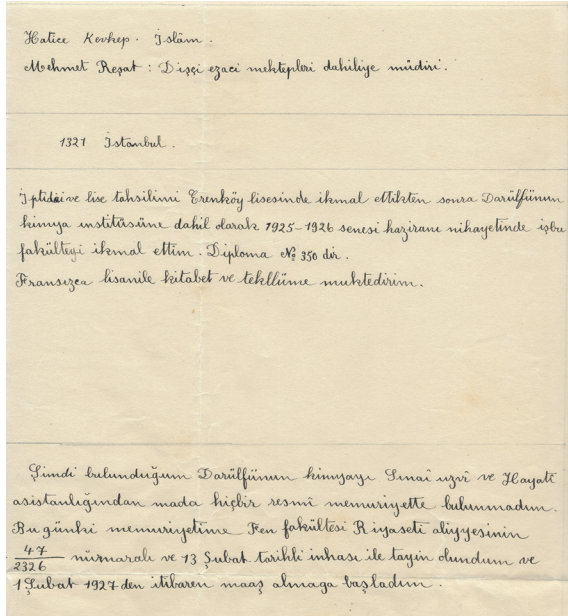 Hatice Kevkep. İslâm.
Mehmet Reşat : Dişçi ezaci mektepleri dahiliye müdiri.
1321 İstanbul.
İptidai ve lise tahsilimi Erenköy lisesinde ikmal ettikten sonra Darülfünun
kimya institüsüne dahil olarak 1925-1926 senesi haziranı nihayetinde işbu
fakülteyi ikmal ettim. Diploma № 350 dir.
Fransızca lisanile kitabet ve tekllüme muktedirim.
Şimdi bulunduğum Darülfünun kimyayı Sınaî uzvî ve Hayatî
asistanlığından mada hiçbir resmî memuriyette bulunmadım.
Bu günki memuriyetime Fen fakültesi Riyaseti aliyyesinin
47/2326 nümaralı ve 13 Şubat tarihli inhası ile tayin olundum ve
1 Şubat 1927 den itibaren maaş almaga başladım.